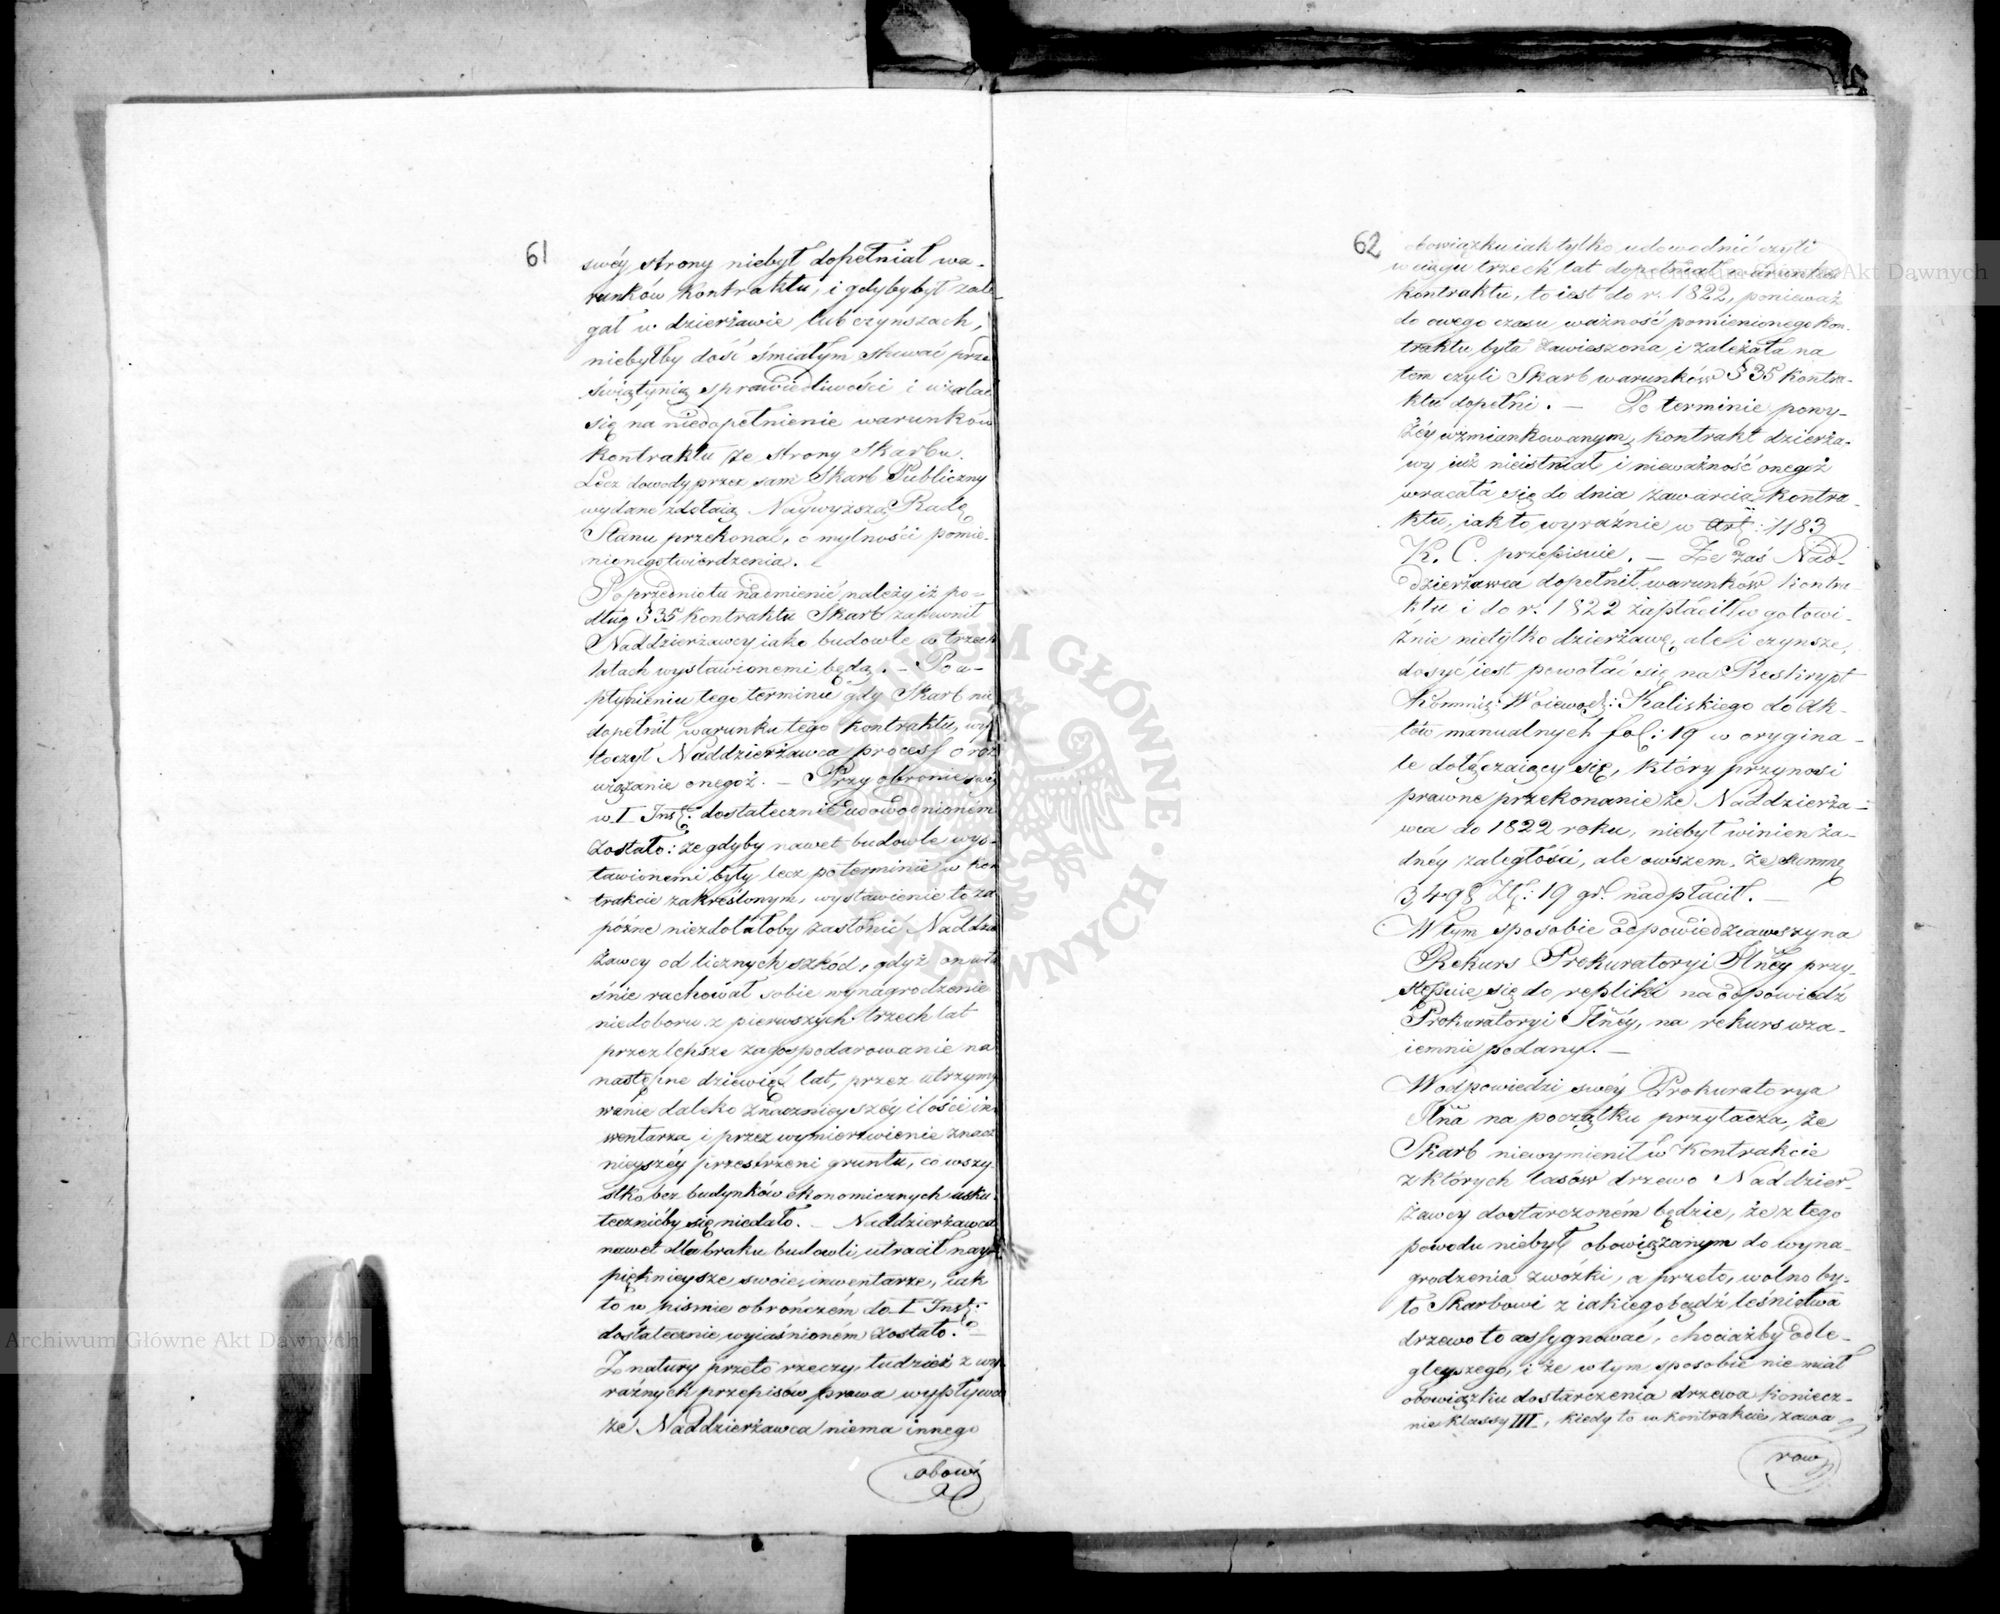 61
swéy strony niebył dopełniał wa-
runków kontraktu, i gdyby był zale
gał w dzierżawie lub czynszach,
niebyłby dość śmiałym stawać prze
świątynią sprawiedliwości i użalać
się na niedopełnienie warunków
kontraktu ze strony Skarbu.
Lecz dowody przez sam Skarb Publiczny
wydane zdołaią Naywyższą Radę
Stanu przekonać, o mylności pomie-
nionego twierdzenia.
Poprzedniotu nadmienić należy iż po-
dług § 35 kontraktu Skarb zapewnił
Naddzierżawcy iako budowle w trzech
latach wystawionemi będą. – Po u-
płynieniu tego terminu gdy Skarb nie
dopełnił warunku tego kontraktu, wy
toczył Naddzierżawca process o roz
wiązanie onegoż. – Przy obronie swéy
w I Inst: dostatecznie udowodnioném
zostało: że gdyby nawet budowle wys-
tawionemi były lecz po terminie w kon
trakcie zakreślonym, wystawienie to za
późne niezdołałoby zasłonić Naddzier
żawcy od licznych szkód, gdyż on wła
śnie rachował sobie wynagrodzenie
niedoboru z pierwszych trzech lat
przez lepsze zagospodarowanie na
następne dziewięć lat, przez utrzymy
wanie daleko znacznieyszéy ilości in
wentarza, i przez wymierzwienie znacz
nieyszéy przestrzeni gruntu, co wszy-
stko bez budynków ekonomicznych usku-
tecznićby się niedało. – Naddzierżawca
nawet dla braku budowli utracił nay
pięknieysze swoie inwentarze, iak
to w pismie obrończém do I Inst:
dostatecznie wyiaśnioném zostało. –
Z natury przeto rzeczy, tudzież z wy
raźnych przepisów prawa wypływa
że Naddzierżawca niema innego
obowią
62
obowiązku iak tylko udowodnić czyli
w ciągu trzech lat dopełniał warunków
kontraktu, to iest do r. 1822, ponieważ
do owego czasu ważność pomienionego kon-
traktu była zawieszona, i zależała na
tem czyli Skarb warunków § 35 kontra-
ktu dopełni. – Po terminie powy-
żéy wzmiankowanym, kontrakt dzierża-
wy iuż nieistniał i nieważność onegoż
wracała się do dnia zawarcia kontra-
ktu, iak to wyraźnie w Art: 1183
K. C. przepisuie. – Że zaś Nad-
dzierżawca dopełnił warunków kontra-
ktu i do r. 1822 zapłacił w gotowi-
źnie nietylko dzierżawę, ale i czynsze,
dosyć iest powołać się na Reskrypt
Kommis: Woiewodz: Kaliskiego do Ak-
tów manualnych fol: 19 w orygina-
le dołączaiący się, który przynosi
prawne przekonanie że Naddzierża-
wca do 1822 roku, niebył winien ża-
dnéy zaległości, ale owszem, że summę
3498 Zł: 19 gr. nadpłacił. –
W tym sposobie odpowiedziawszy na
Rekurs Prokuratoryi Jłnéy przy-
stępuie się do repliki na odpowiedź
Prokuratoryi Jłnéy, na rekurs wza-
iemnie podany. –
W odpowiedzi swéy Prokuratorya
Jłna na początku przytacza, że
Skarb niewymienił w kontrakcie
z których lasów drzewo Naddzier-
żawcy dostarczoném będzie, że z tego
powodu niebył obowiązanym do wyna-
grodzenia zwózki, a przeto, wolno by-
ło Skarbowi z iakiegobądź leśnictwa
drzewo to assygnować, chociażby odle-
gleyszego, i że w tym sposobie nie miał
obowiązku dostarczenia drzewa koniecz-
nie klassy III, kiedy to w kontrakcie zawa-
row